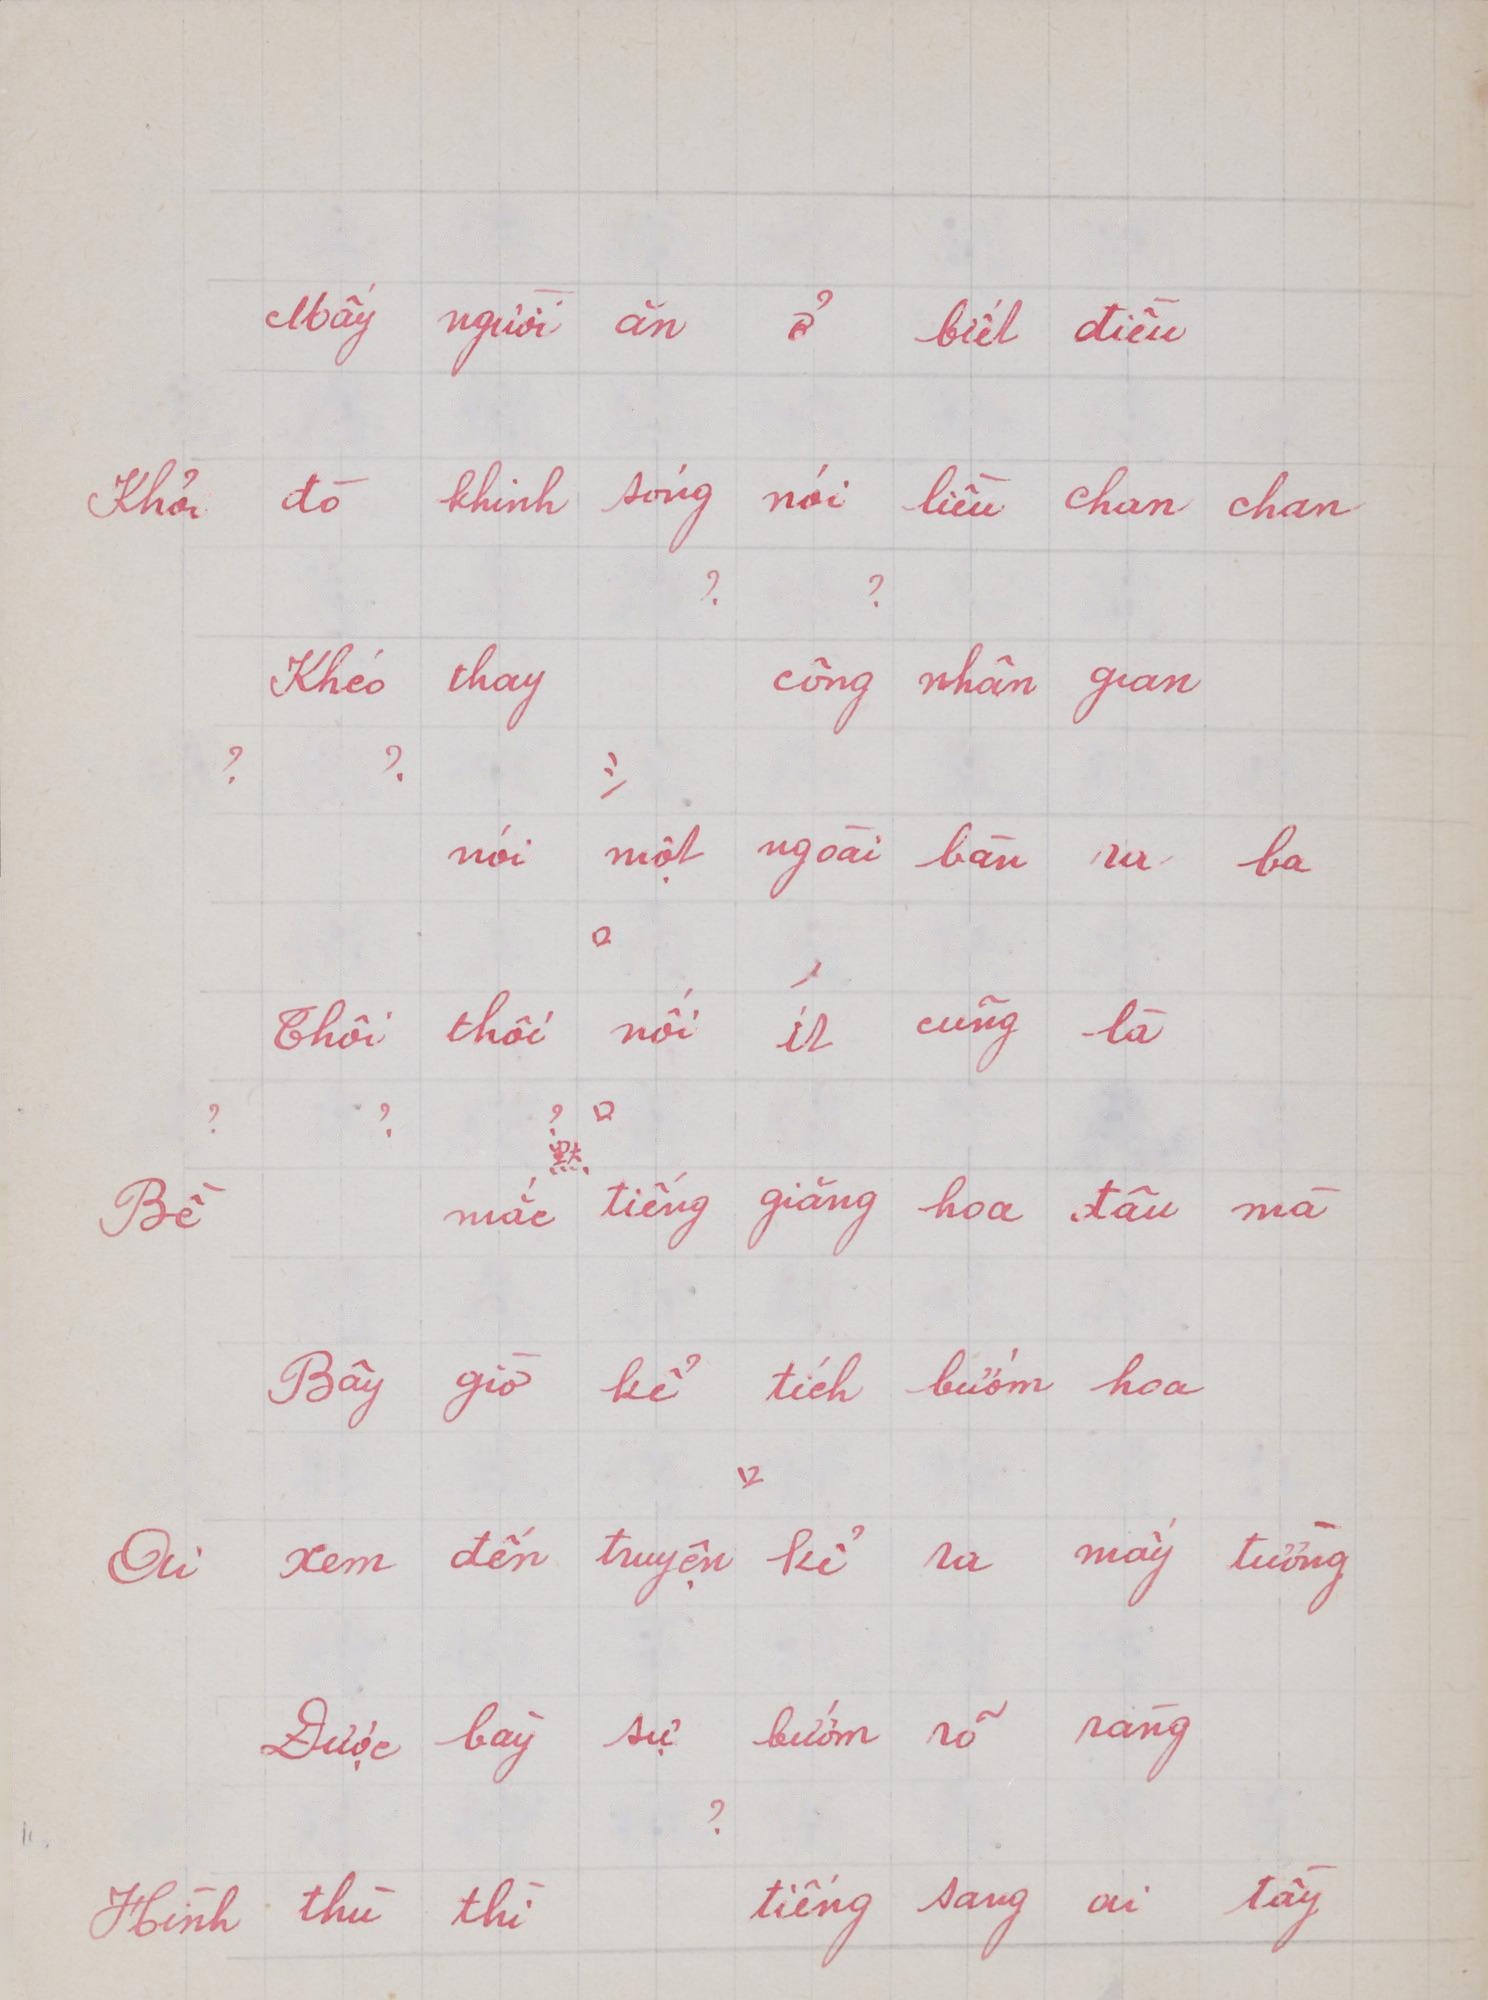 Mấy người ăn ở biết điều
Khỏi đò khinh sóng nói liều chan chan
? ?
Khéo thay công nhân gian
? ?
nói một ngoài bàn ra ba
Thôi thôi nối ít cũng là
? ? ?
默
Bề mắc tiếng giăng hoa đâu mà
Bây giờ kể tích bướm hoa
Ai xem đến truyện kể ra mấy tường
Được bầy sự bướm rõ ràng
?
Hình thù thì tiếng sang ai tầy